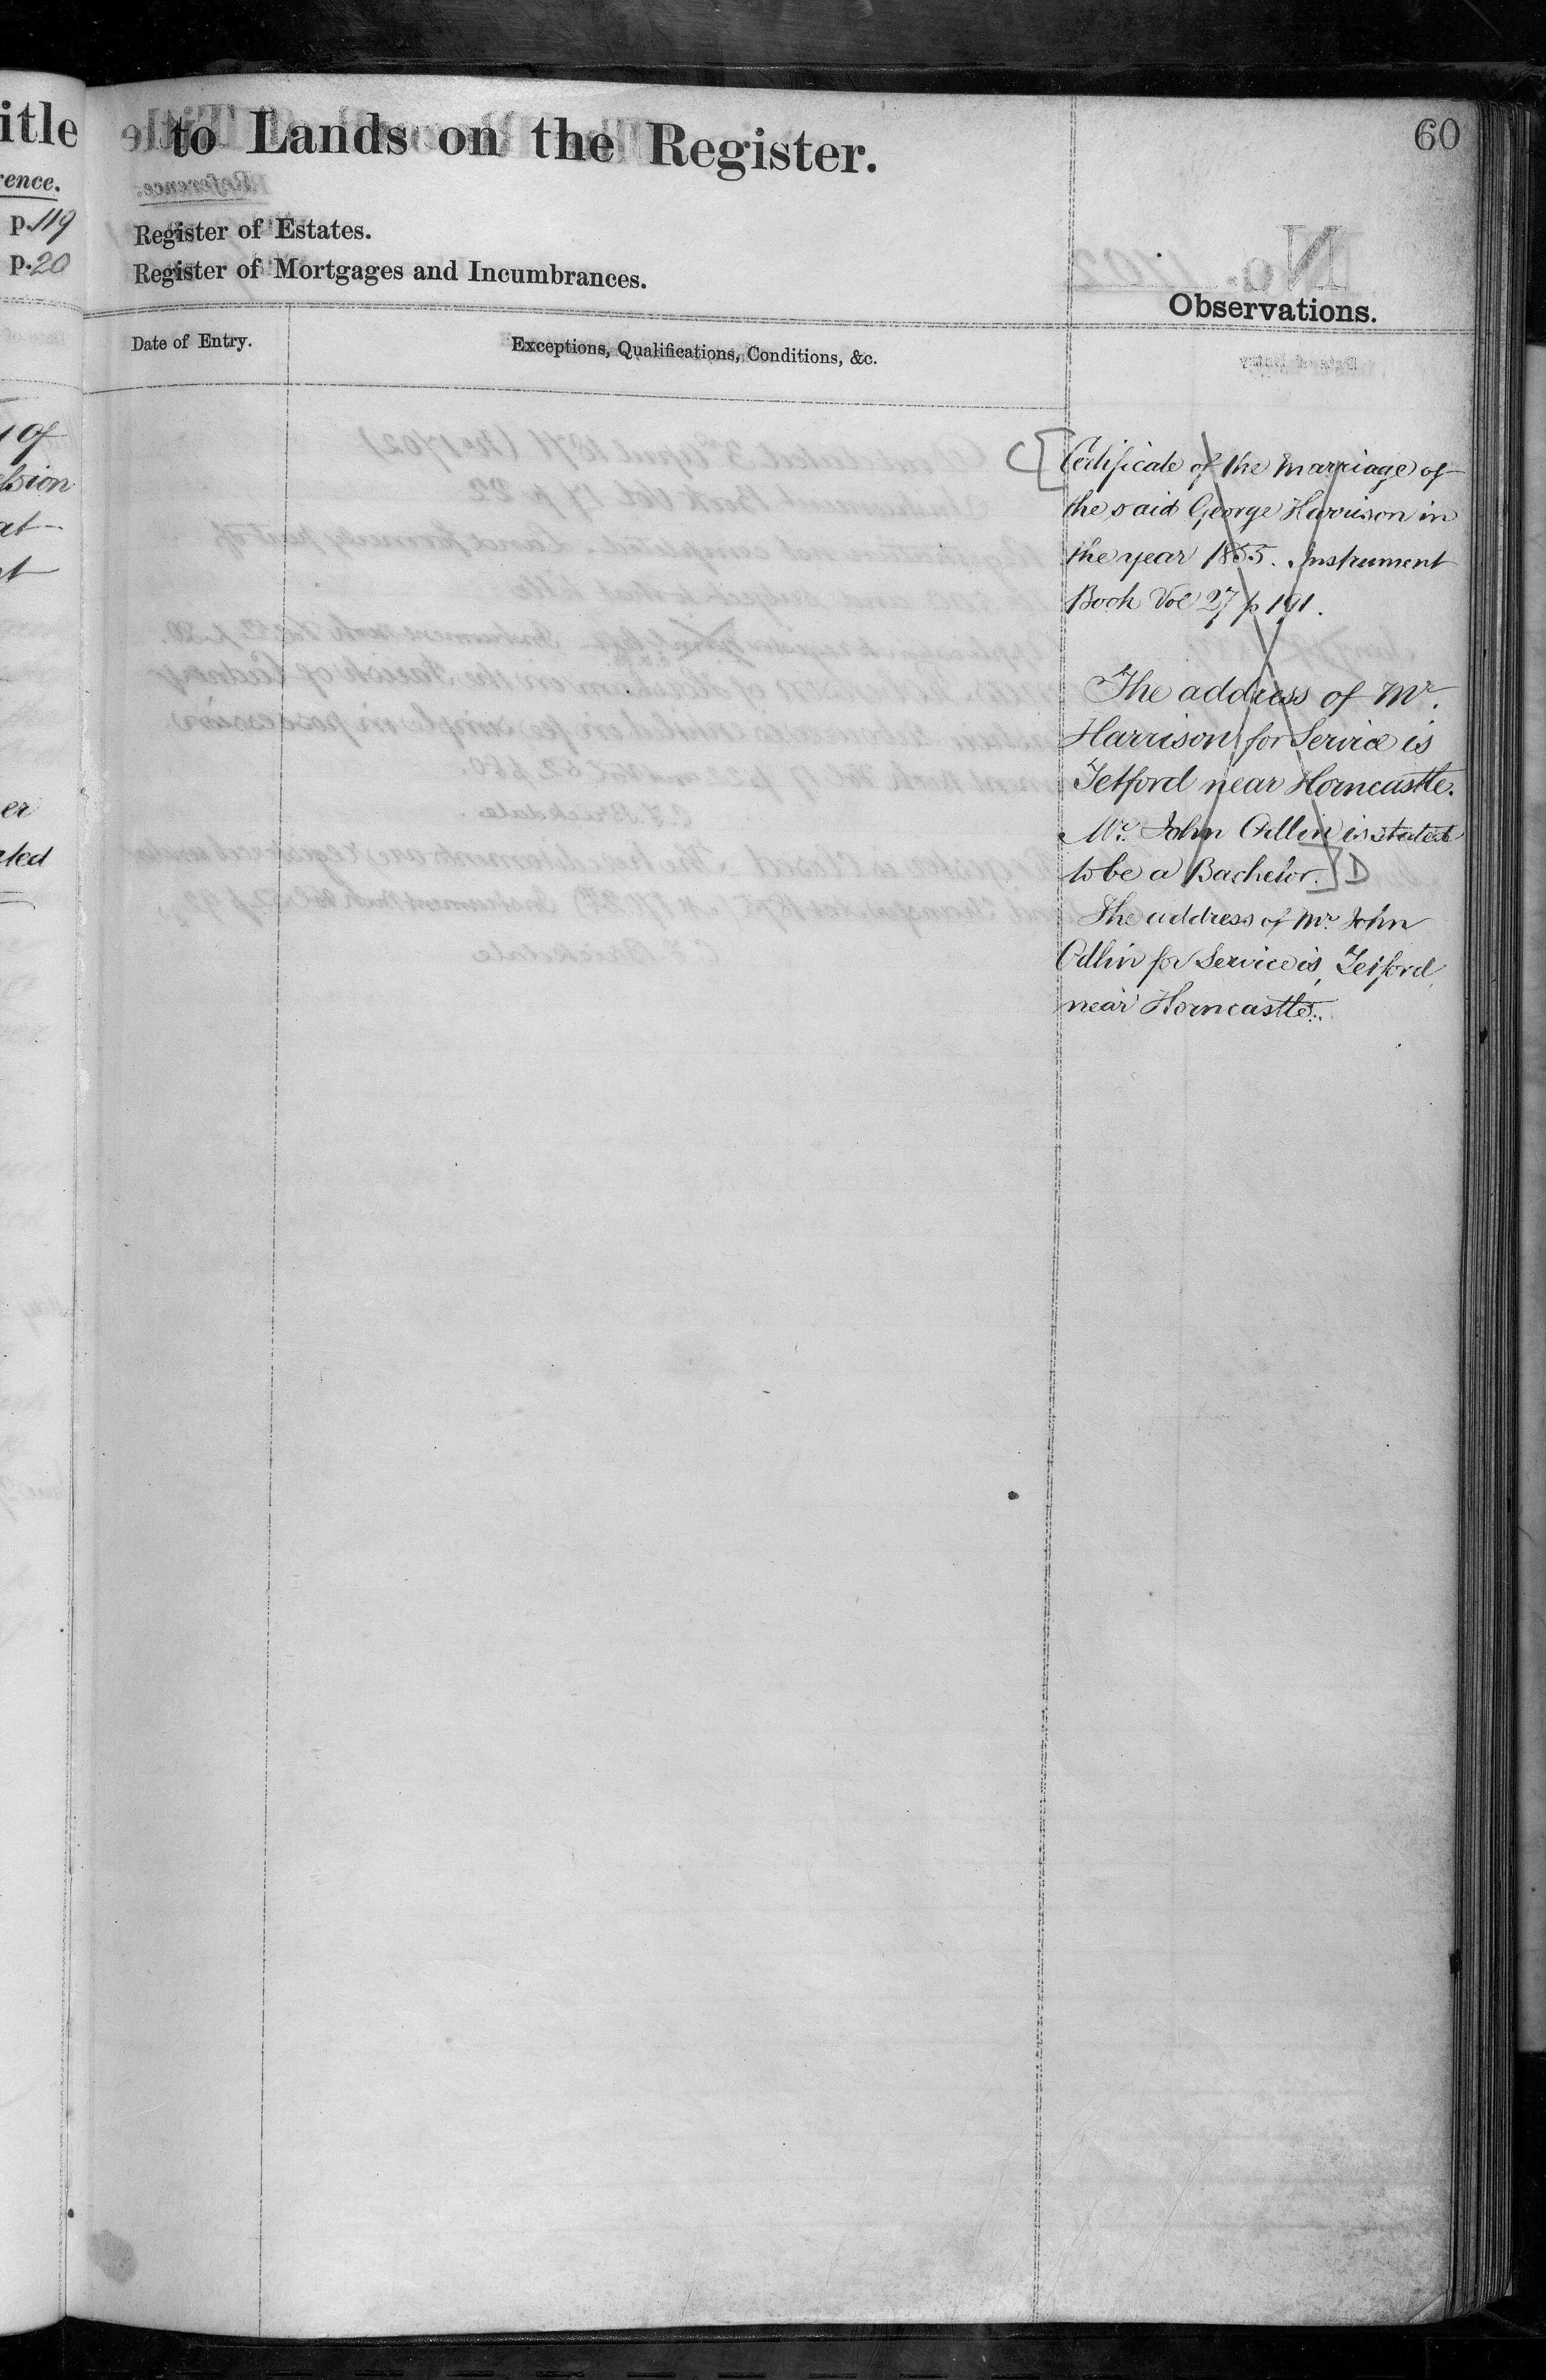 itle
rence.
p. 119
p. 20
of
at
er
ated
to Lands on the Register.
60
Register of Estates.
Register of Mortgages and Incumbrances.
Observations.
Date of Entry.
Exceptions, Qualifications, Conditions, &c.
C [ Certificate of the Marriage of
the said George Harrison in
the year 1855. Instrument
Book Vol 27 p 191.
The address of Mr.
Harrison for Service is
Tetford near Horncastle.
Mr. John Odlin is stated
to be a Bachelor. ] D
The address of Mr John
Odlin for Service is, Tetford,
near Horncastle.